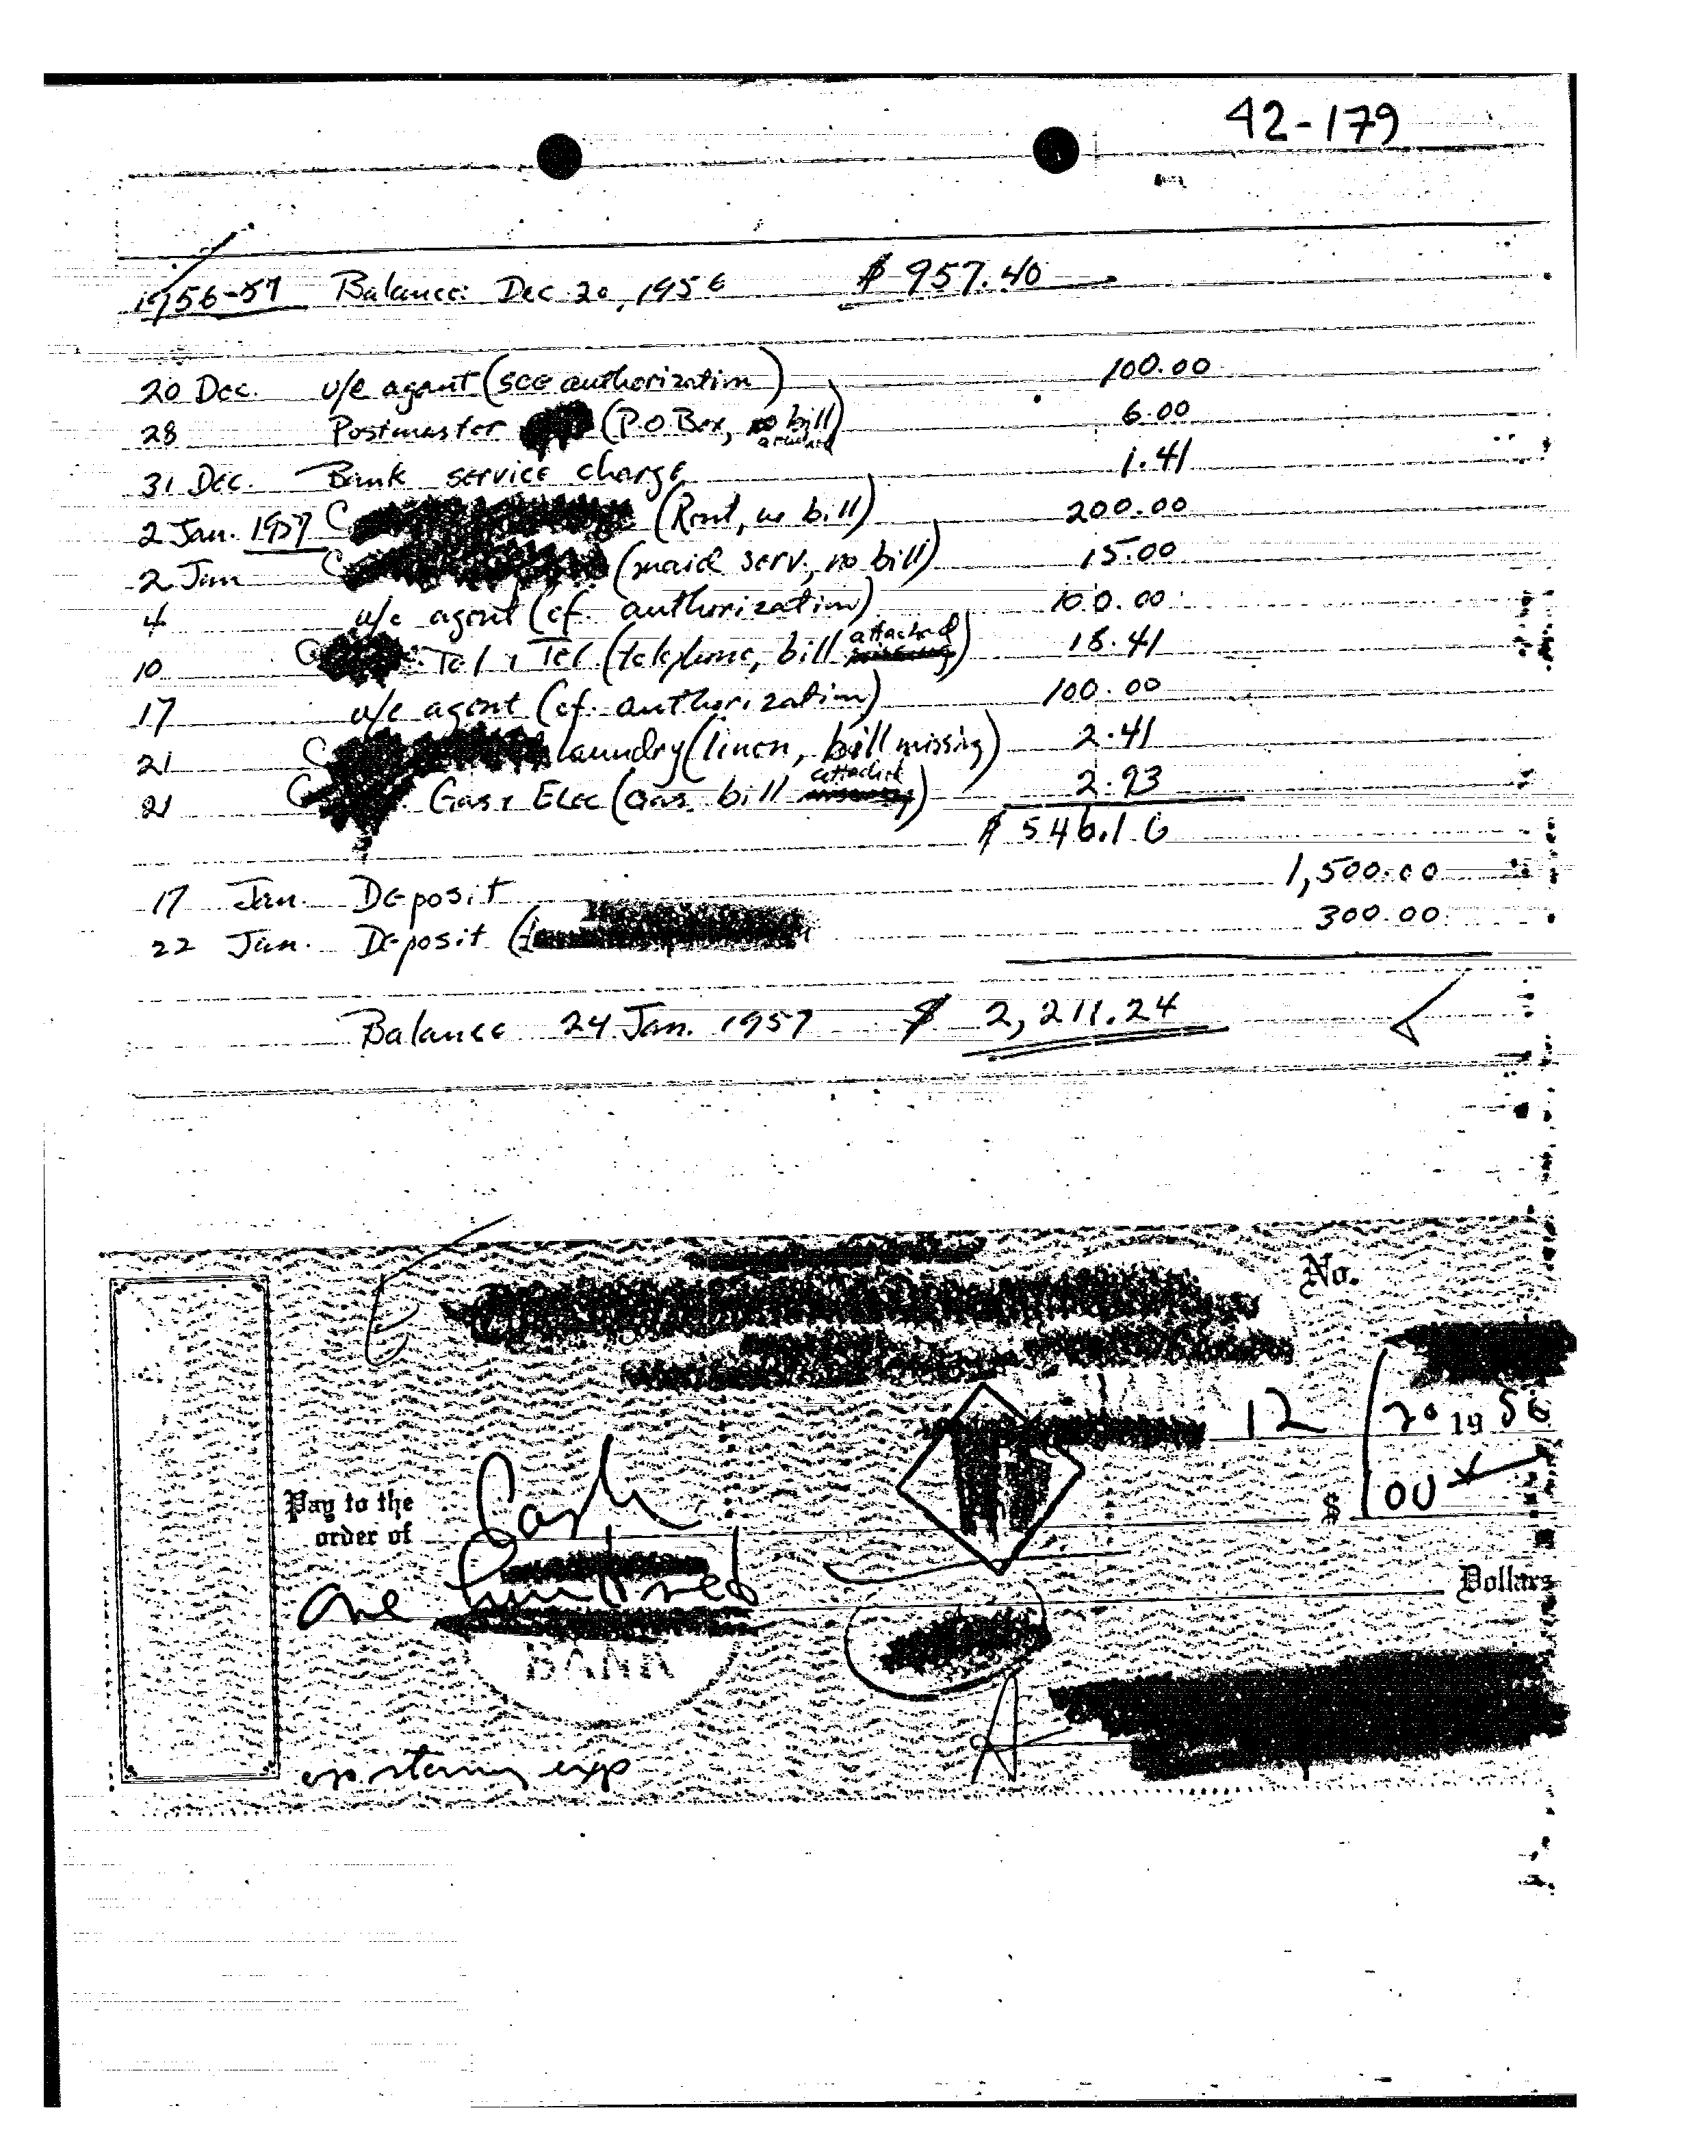 42-179
1956-57 Balance: Dec 20, 1956 $ 957.40
20 Dec. u/c agent (see authorization) 100.00
28 Postmaster (P.O Box, no bill) 6.00
31 Dec. Bank service charge 1.41
2 Jan. 1957 (Rent, no bill) 200.00
2 Jan (maid serv., no bill) 15.00
4 u/c agent (cf. authorization) 100.00
10 Tel & Tel (telephone, bill attached) 18.41
17 u/c agent (cf. authorization) 100.00
21 laundry (linen, bill missing) 2.41
21 Gas & Elec (Gas bill attached) 2.93
$ 546.16
17 Jan. Deposit 1,500.00
22 Jan. Deposit 300.00
Balance 24 Jan. 1957 $ 2,211.24
No.
BANK
12/20 1956
Pay to the
order of Cash $ 100
One hundred Dollars
BANK